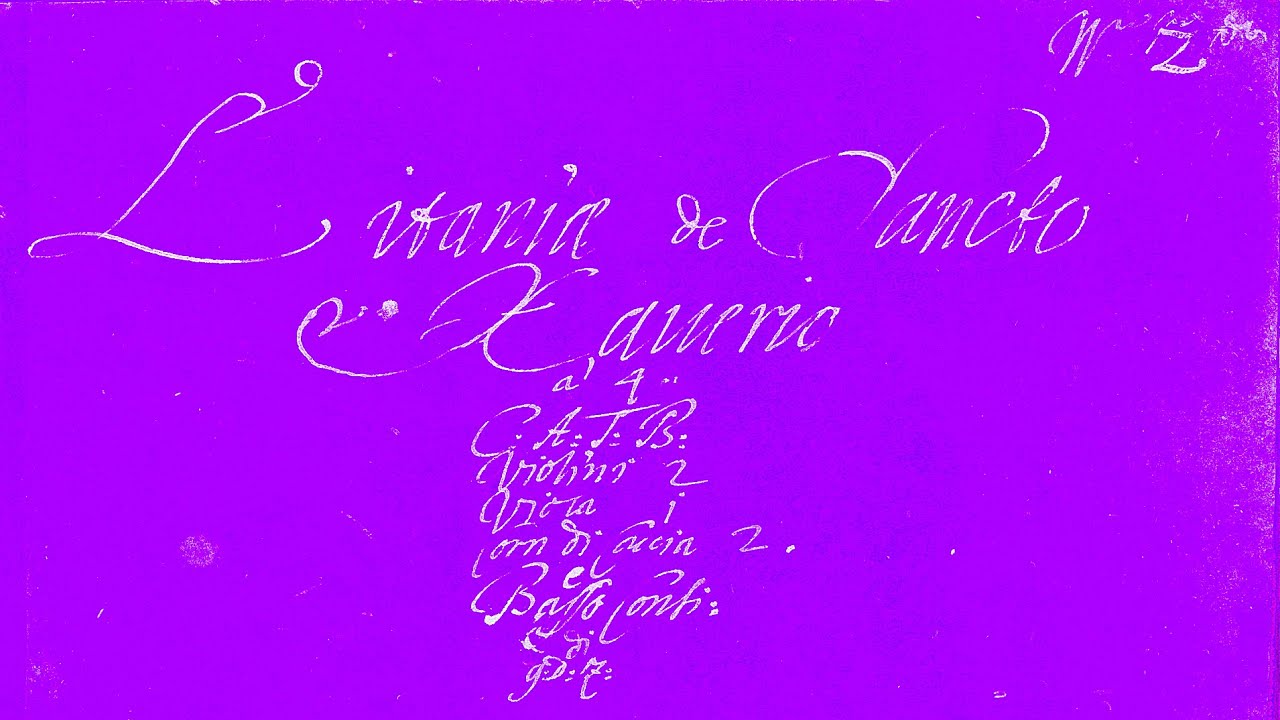 Litaniæ de Sancto
Xauerio
a' 4
C: A: T: B:
Violini 2
Viola i
Corn di Caccia 2.
e
Basso Conti:
di
g: D: Z: